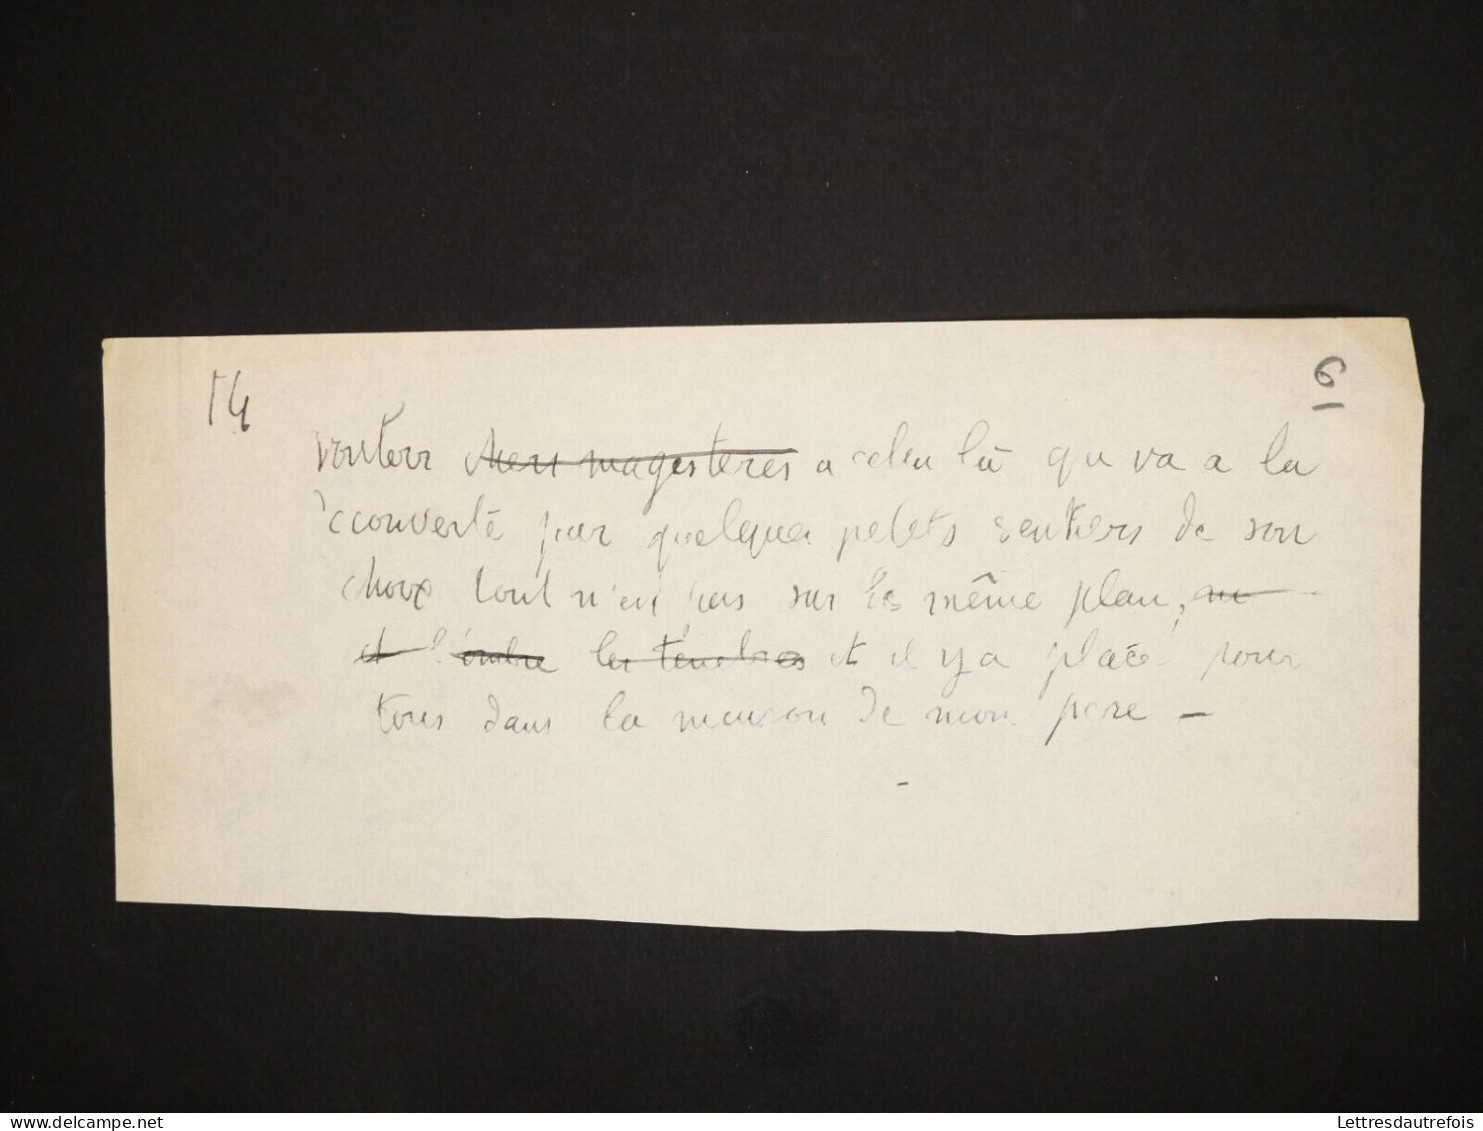 14
6
à celui là qui va à la
par quelques petits sentiers de son
choix tout n'est pas sur le même plan,
et l'ombre les ténèbres et il y a place pour
tous dans la maison de mon père –
delcampe.net
Lettresdautrefois